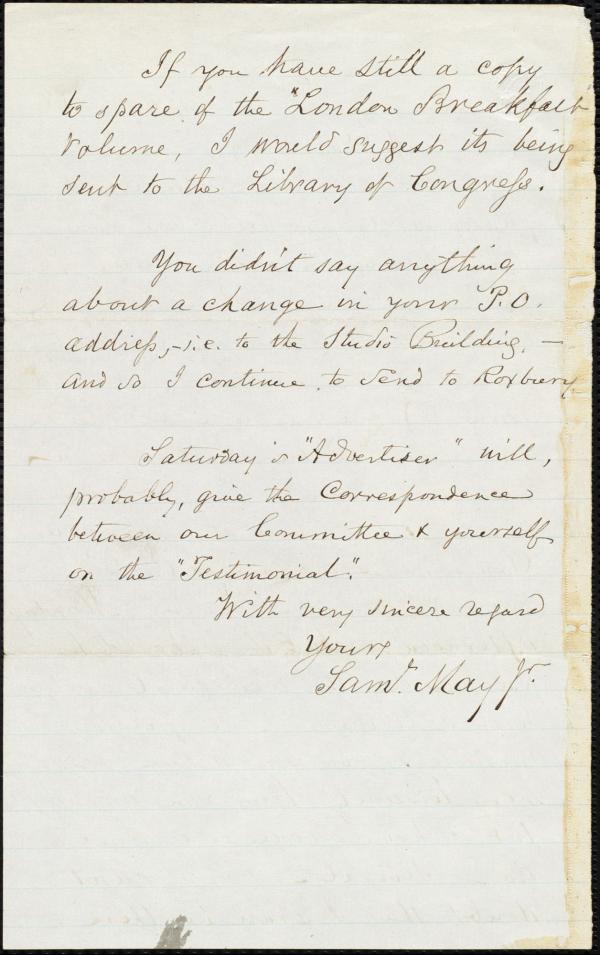 If you have still a copy
to spare of the "London Breakfast
Volume, I would suggest its being
sent to the Library of Congress.
You didn't say anything
about a change in your P.O.
address,—i.e. to the Studio Building,—
and so I continue to send to Roxbury
Saturday's "Advertiser" will,
probably, give the Correspondence
between our Committee & yourself
on the "Testimonial".
With very sincere regard
Yours
Saml. May Jr.